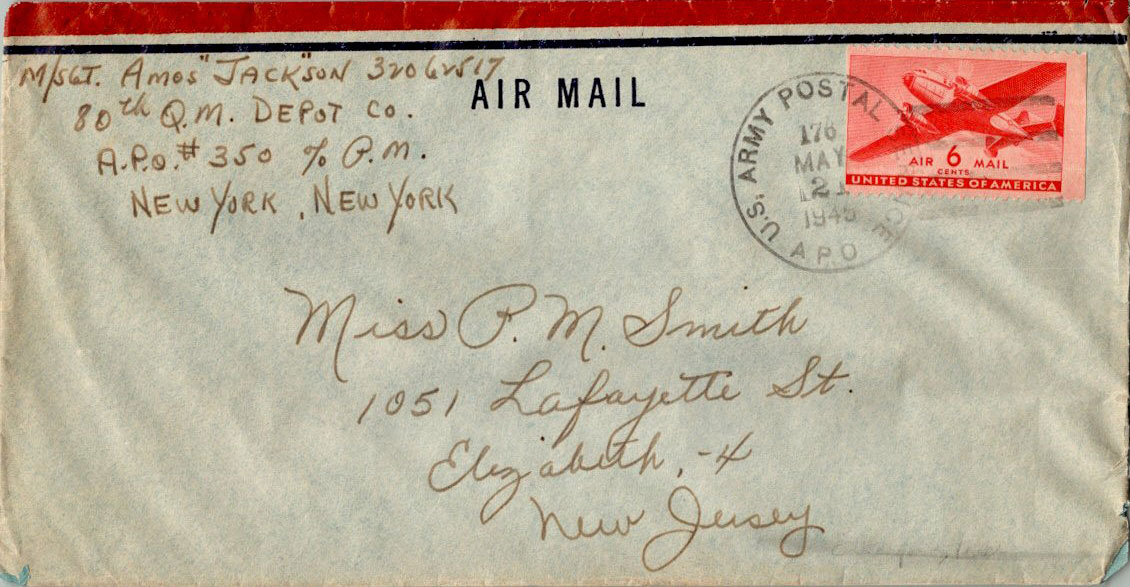 M/SGT. AMOS "JACK"SON 32062517
80th Q.M. DEPOT CO.
A.P.O. # 350 % P.M.
NEW YORK, NEW YORK
AIR MAIL
U.S. ARMY POSTAL
A.P.O
176
MAY
21
1945
AIR 6 MAIL
CENTS
UNITED STATES OF AMERICA
Miss P. M. Smith
1051 Lafayette St.
Elizabeth, -4
New Jersey